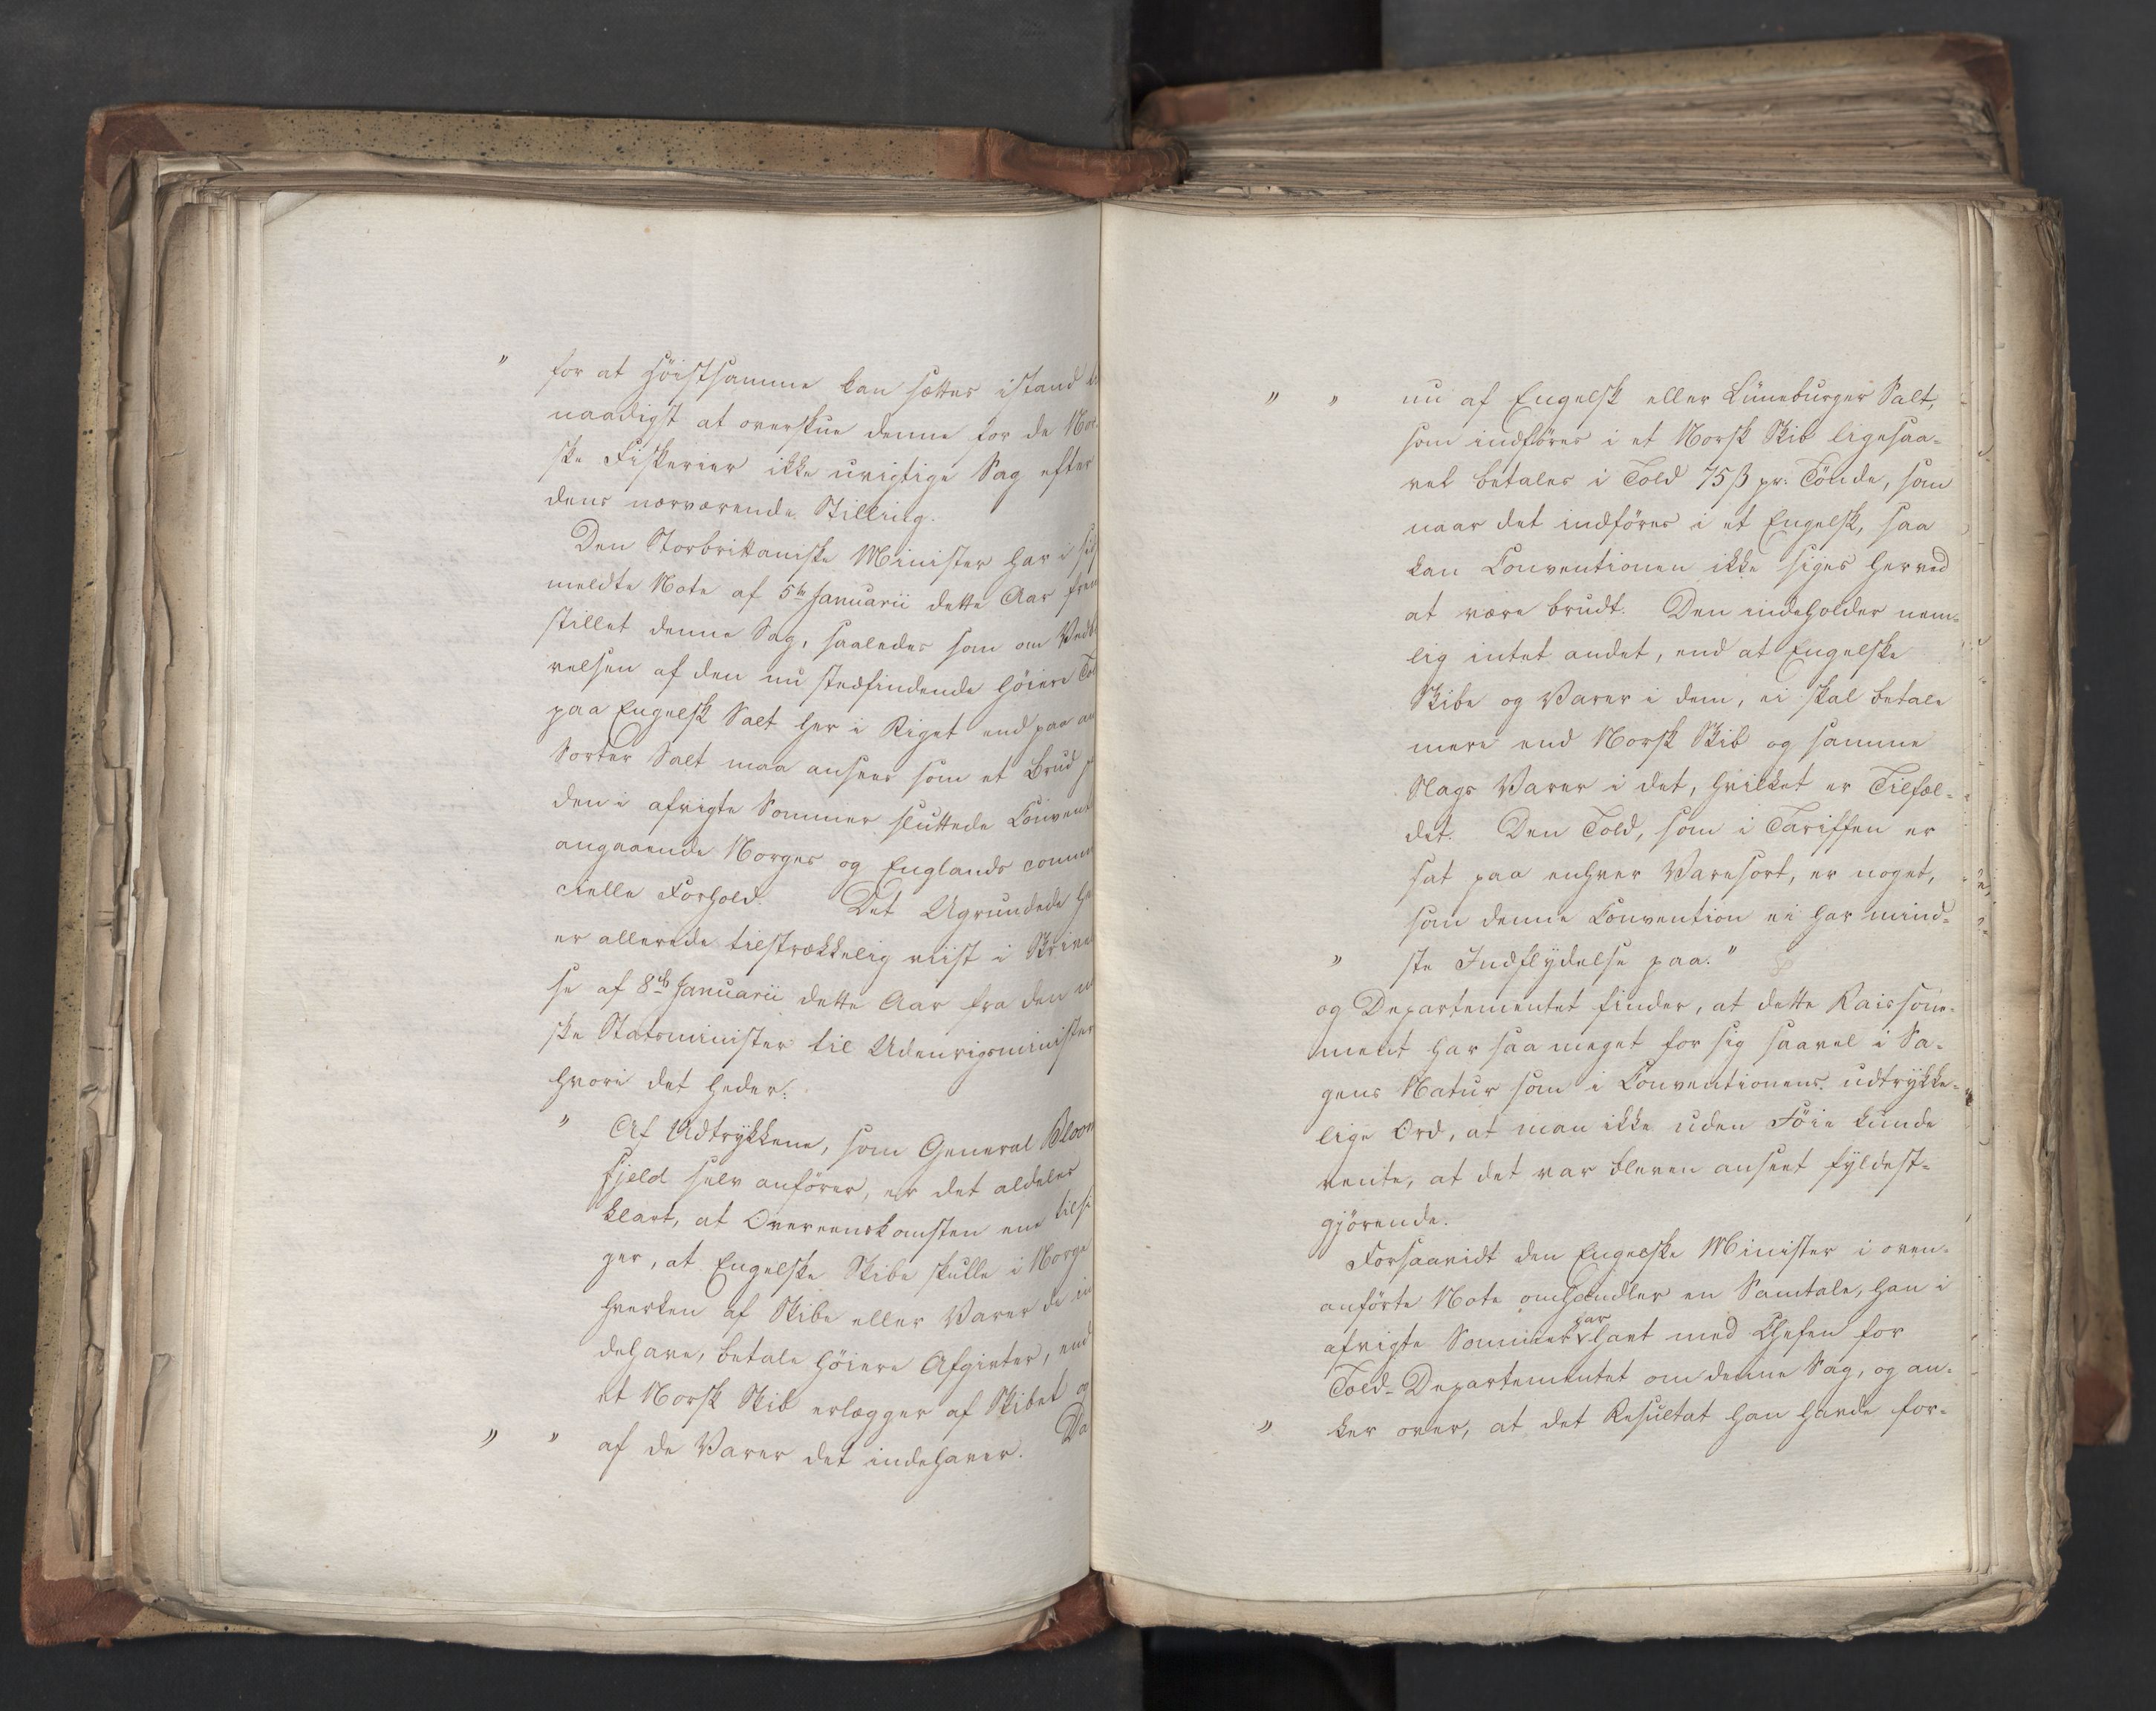 " for at Høistsamme kan sættes istand
naadigst at overskue denne for de Nor-
ske Fiskerier ikke uvigtige Sag efter
dens nærværende Stilling.
Den Storbrittaniske Minister har i
meldte Note af 5te Januarii dette Aar frem
stillet denne Sag, saaledes som om Vedb
velsen af den nu stedfindende høiere Tol
paa Engelsk Salt her i Riget end paa an
Sorter Salt maa ansees som et Brud p
den i afvigte Sommer sluttede Convent
angaaende Norges og Englands comm
cielle Forhold. Det Ugrundede he
er allerede tilstrækkelig viist i Skrivel
se af 8de Januarii dette Aar fra den no
ske Statsminister til Udenrigsminister
hvori det heder:
" Af Udtrykkene, som General Bloom
fjeld selv anfører, er det aldeles
klart, at Overeenskomsten ene tilsi
ger, at Engelske Skibe skulle i Norge
hverken af Skibe eller Varer de in
dehave, betale høiere Afgivter, end
et Norsk Skib erlægger af Skibet og
" " af de Varer det indehaver. Da
" " nu af Engelsk eller Lüneburger Salt,
som indføres i et Norsk Skib ligesaa-
vel betales i Told 75 ß pr: Tönde, som
naar det indføres i et Engelsk, saa
kan Conventionen ikke siges herved
at være brudt. Den indeholder nem-
lig intet andet, end at Engelske
Skibe og Varer i dem, ei skal betale
mere end Norsk Skib og samme
Slags Varer i det, hvilket er Tilfæl-
det. Den Told, som i Tariffen er
sat paa enhver Varesort, er noget,
som denne Convention ei har mind-
" ste Indflydelse paa."
og Departementet finder, at dette Raisonne-
ment har saa meget for sig saavel i Sa-
gens Natur som i Conventionens udtrykke-
lige Ord, at man ikke uden Föie kunde
vente, at det var bleven anseet fyldest-
gjörende.
Forsaavidt den Engelske Minister i oven-
anførte Note omhandler en Samtale, han i
afvigte Sommer har havt med Chefen for
Told-Departementet om denne Sag, og an-
" ker over, at det Resultat han havde for-